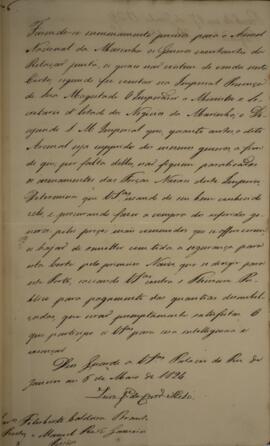 Fazendo-se summamente preciso para o Arsenal
Nacional da Marinha os Generos constantes da
Relação junta, os quaes não existem de venda nesta
Corte, segundo fez constar na Imperial Presença
de Sua Magestade O Imperador o Ministro e Se-
cretario d'Estado dos Negocios da Marinha; e De-
sejando S. M. Imperial que, quanto antes, o dito
Arsenal seja supprido dos mesmos generos, a fim
de que, por falta delles, não fiquem paralisados
os armamentos das Forças Navaes deste Imperio,
Determina que V.S.as
este, e procurando fazer a compra dos referidos ge-
neros, pelos preços mais commodos que se offerecerem,
e hajão de remetter com toda a segurança para
esta Corte pelo primeiro Navio que se dirigir para
este Porto, saccando V.S.as contra o Thesouro Pu-
blico para pagamento das quantias
que serão promptamente satisfeitas. O
que participo a V.S.as para sua intelligencia e
execução.
Deos Guarde a V.S.as Palacio do Rio de
Janeiro em 6 de Maio de 1824
Luiz J.e de Carv.o e Mello
Felisberto Caldeira Brant
Manoel